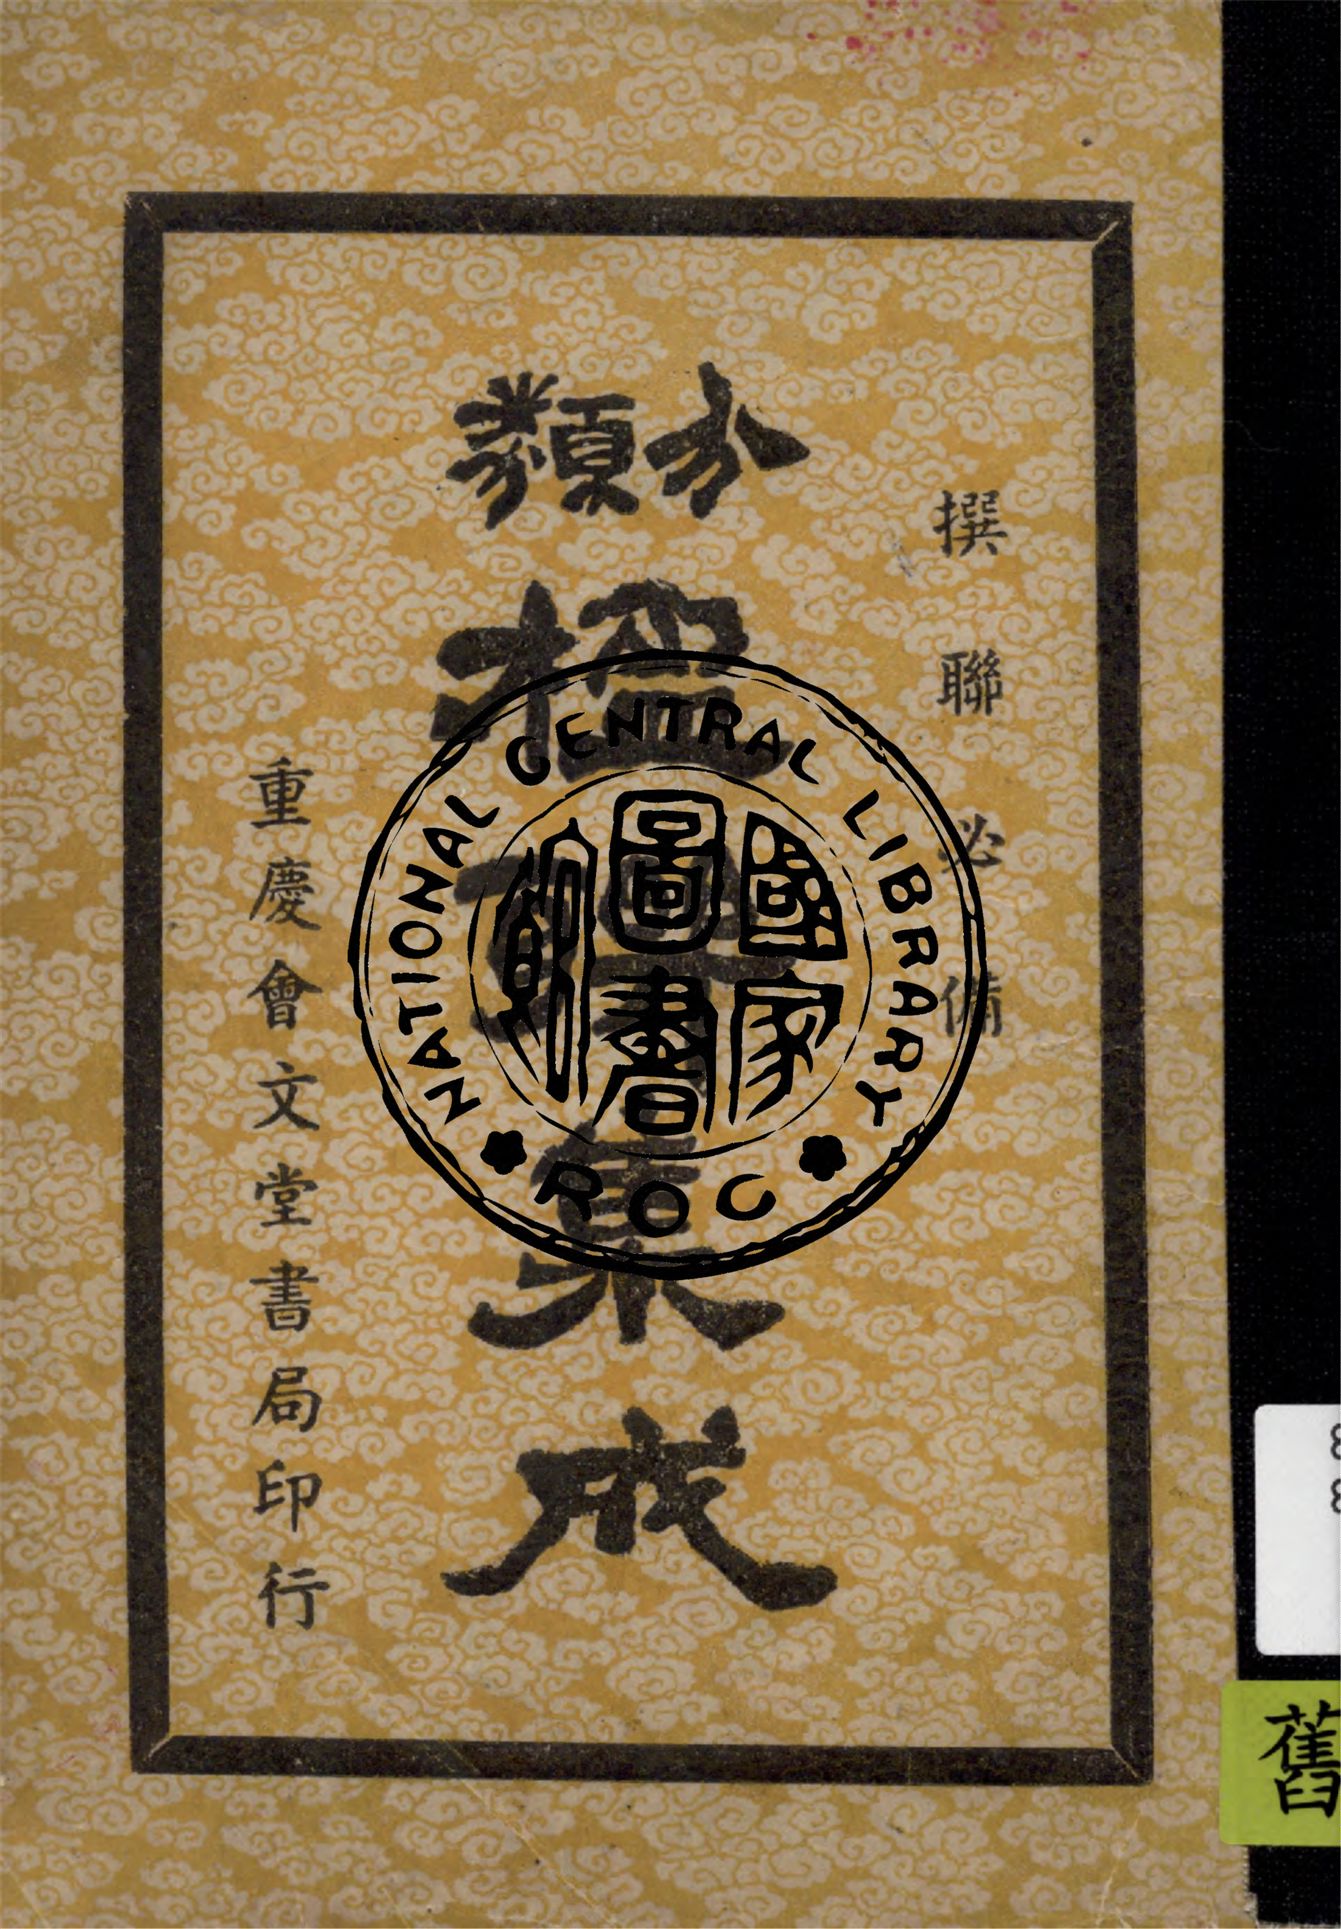 撰聯必備
分類
楹集成
重慶會文堂書局印行
NATIONAL CENTRAL LIBRARY
國家圖書館
ROC
舊